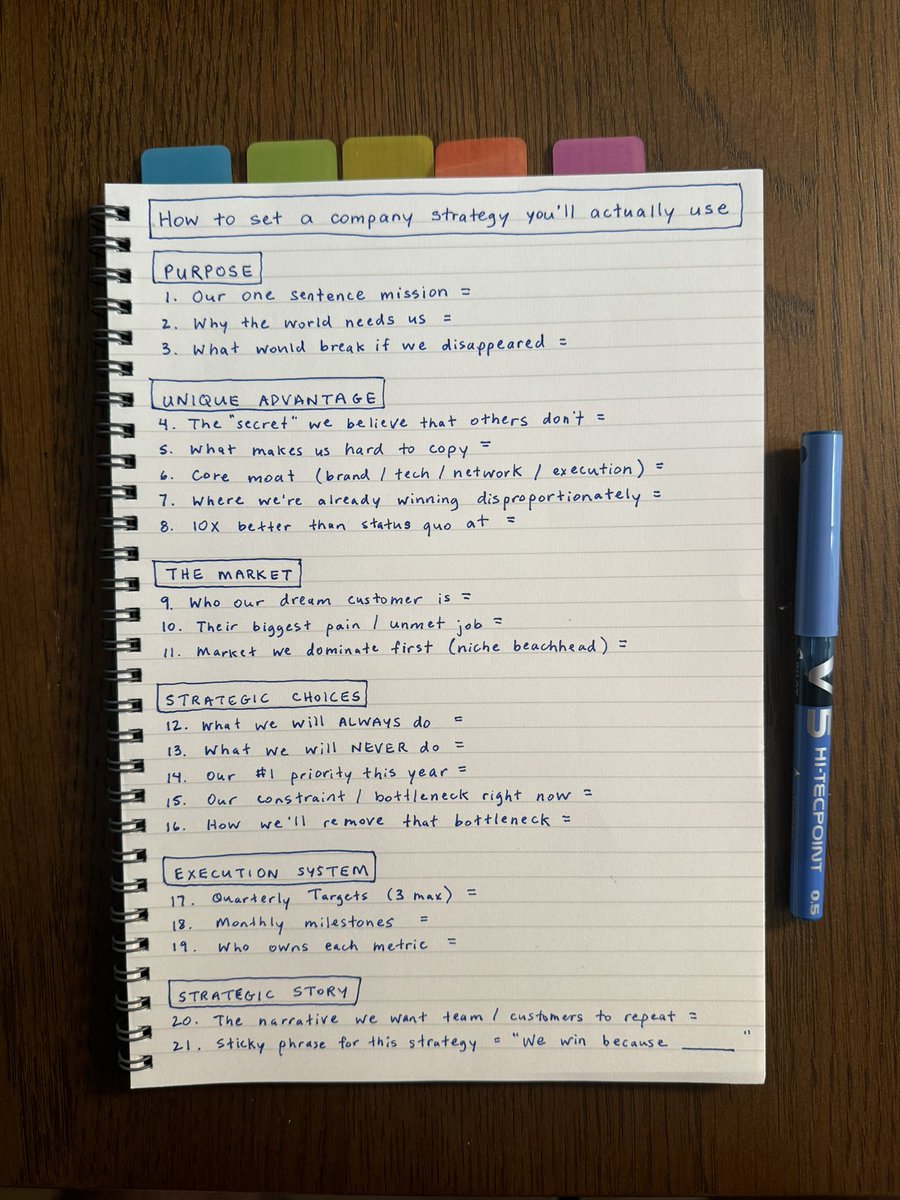 How to set a company strategy you'll actually use
PURPOSE
1. Our one sentence mission =
2. Why the world needs us =
3. What would break if we disappeared =
UNIQUE ADVANTAGE
4. The "secret" we believe that others don't =
5. What makes us hard to copy =
6. Core moat (brand / tech / network / execution) =
7. Where we're already winning disproportionately =
8. 10x better than status quo at =
THE MARKET
9. Who our dream customer is =
10. Their biggest pain / unmet job =
11. Market we dominate first (niche beachhead) =
STRATEGIC CHOICES
12. What we will ALWAYS do =
13. What we will NEVER do =
14. Our #1 priority this year =
15. Our constraint / bottleneck right now =
16. How we'll remove that bottleneck =
EXECUTION SYSTEM
17. Quarterly Targets (3 max) =
18. Monthly milestones =
19. Who owns each metric =
STRATEGIC STORY
20. The narrative we want team / customers to repeat =
21. Sticky phrase for this strategy = "We win because _____ "
V5 HI-TECPOINT 0.5